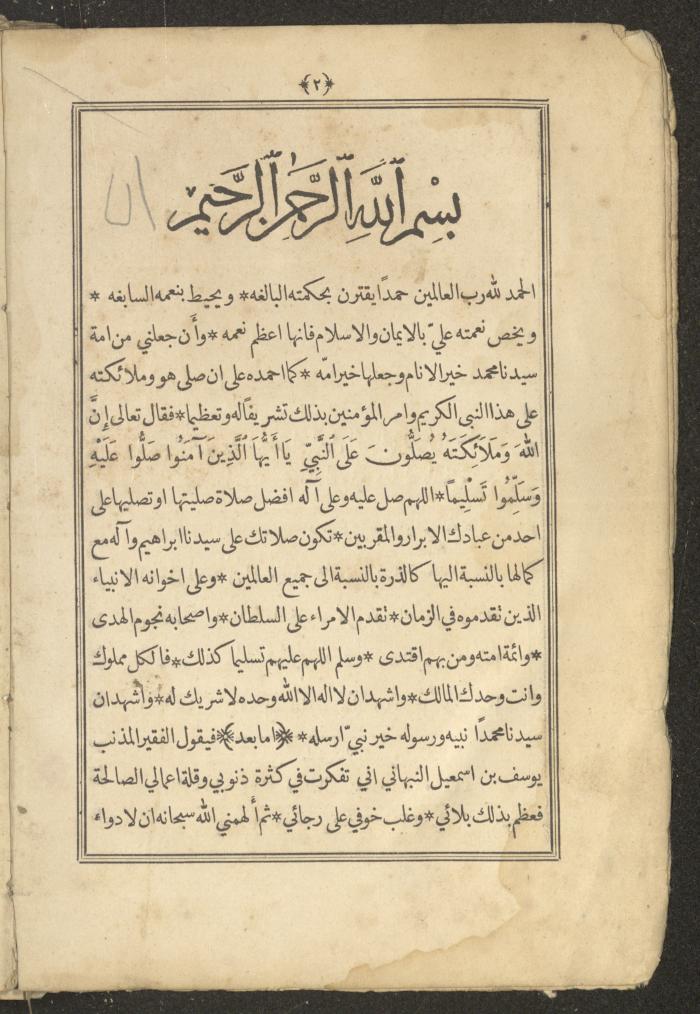 ﴿٢﴾
بِسْمِ ٱللَّهِ ٱلرَّحْمٰنِ ٱلرَّحِيمِ
الحمد لله رب العالمين حمدًا يقترن بحكمته البالغه * ويحيط بنعمه السابغه *
ويخص نعمته عليّ بالايمان والاسلام فانها اعظم نعمه * وأَن جعلني من امة
سيدنا محمد خير الانام وجعلها خير امّه * كما احمده على ان صلى هو وملائكته
على هذا النبي الكريم وامر المؤمنين بذلك تشريفًا له وتعظيما * فقال تعالى إِنَّ
اللهَ وَمَلَائِكَتَهُ يُصَلُّونَ عَلَى النَّبِيِّ يَاأَيُّهَا الَّذِينَ آمَنُوا صَلُّوا عَلَيْهِ
وَسَلِّمُوا تَسْلِيمًا * اللهم صل عليه وعلى آله افضل صلاة صليتها او تصليها على
احد من عبادك الابرار والمقربين * تكون صلاتك على سيدنا ابراهيم وآله مع
كمالها بالنسبة اليها كالذرة بالنسبة الى جميع العالمين * وعلى اخوانه الانبياء
الذين تقدموه في الزمان * تقدم الامراء على السلطان * واصحابه نجوم الهدى
* وائمة امته ومن بهم اقتدى * وسلم اللهم عليهم تسليما كذلك * فالكل مملوك
وانت وحدك المالك * واشهد ان لا اله الا الله وحده لا شريك له * واشهد ان
سيدنا محمدًا نبيه ورسوله خير نبيّ ارسله * ﴿اما بعد﴾ فيقول الفقير المذنب
يوسف بن اسمعيل النبهاني اني تفكرت في كثرة ذنوبي وقلة اعمالي الصالحة
فعظم بذلك بلائي * وغلب خوفي على رجائي * ثم أَلهمني الله سبحانه ان لا دواء